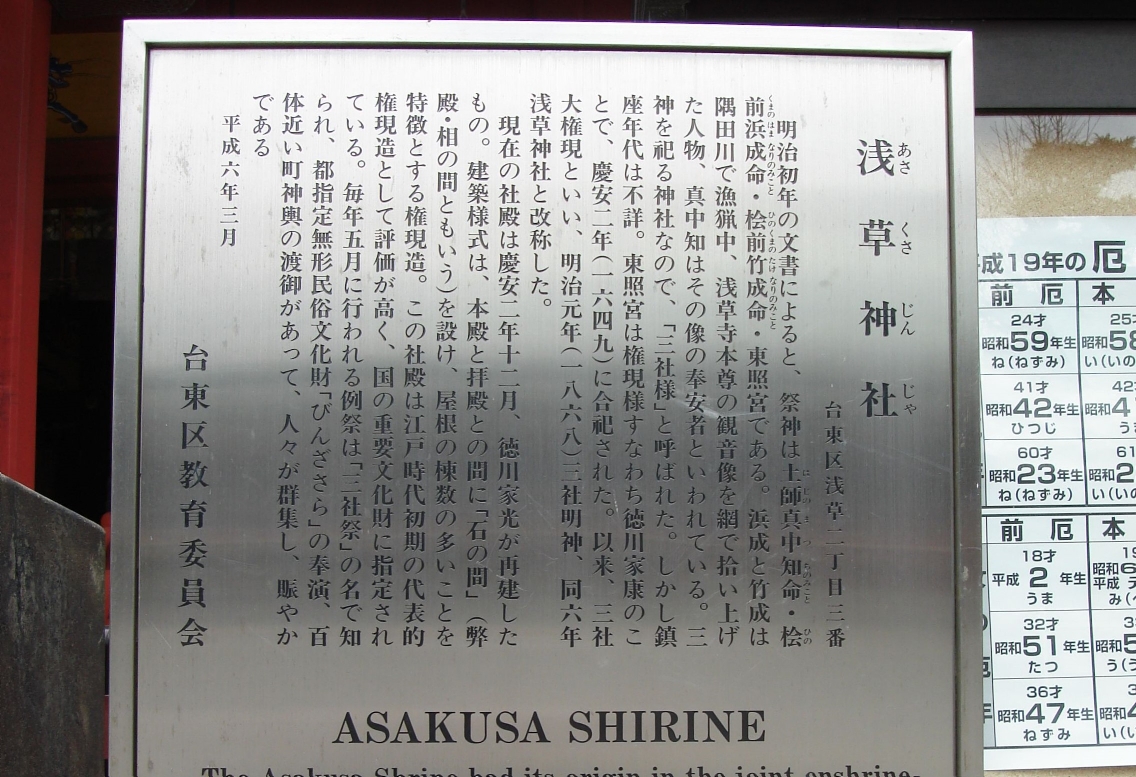 浅草神社
あさ くさ じん じゃ
台東区浅草二丁目三番
明治初年の文書によると、祭神は土師真中知命・桧
はじのまつちのみこと ひの
前浜成命・桧前竹成命・東照宮である。浜成と竹成は
くまのはまなりのみこと ひのくまのたけなりのみこと
隅田川で漁猟中、浅草寺本尊の観音像を網で拾い上げ
た人物、真中知はその像の奉安者といわれている。三
神を祀る神社なので、「三社様」と呼ばれた。しかし鎮
座年代は不詳。東照宮は権現様すなわち徳川家康のこ
とで、慶安二年(一六四九)に合祀された。以来、三社
大権現といい、明治元年(一八六八)三社明神、同六年
浅草神社と改称した。
現在の社殿は慶安二年十二月、徳川家光が再建した
もの。建築様式は、本殿と拝殿との間に「石の間」(弊
殿・相の間ともいう)を設け、屋根の棟数の多いことを
特徴とする権現造。この社殿は江戸時代初期の代表的
権現造として評価が高く、国の重要文化財に指定され
ている。毎年五月に行われる例祭は「三社祭」の名で知
られ、都指定無形民俗文化財「びんざさら」の奉演、百
体近い町神輿の渡御があって、人々が群集し、賑やか
である
平成六年三月
台東区教育委員会
ASAKUSA SHIRINE
The Asakusa Shrine had its origin in the joint enshrine-
成19年の厄
前 厄 本
24才 25
昭和59年生 昭和58
ね(ねずみ) い(いの
41才 42
昭和42年生 昭和4
ひつじ う
60才 61
昭和23年生 昭和2
ね(ねずみ) い(いの
前 厄 本
18才 19
平成2年生 昭和6
平成
うま み(
32才 3
昭和51年生 昭和5
たつ う(う
36才 3
昭和47年生 昭和4
ねずみ い(い